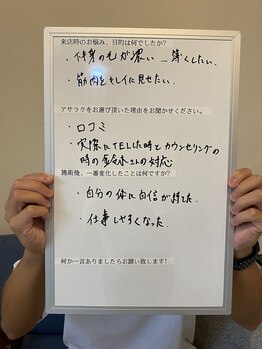 来店時のお悩み、目的は何でしたか?
・体身の毛が濃い…薄くしたい。
・筋肉をキレイに見せたい。
アサラクをお選び頂いた理由をお聞かせください。
・口コミ
・実際にTELした時とカウンセリングの
時の鈴木さんの対応
施術後、一番変化したことは何ですか?
・自分の体に自信が持てた
・仕事しやすくなった
何か一言ありましたらお願い致します!